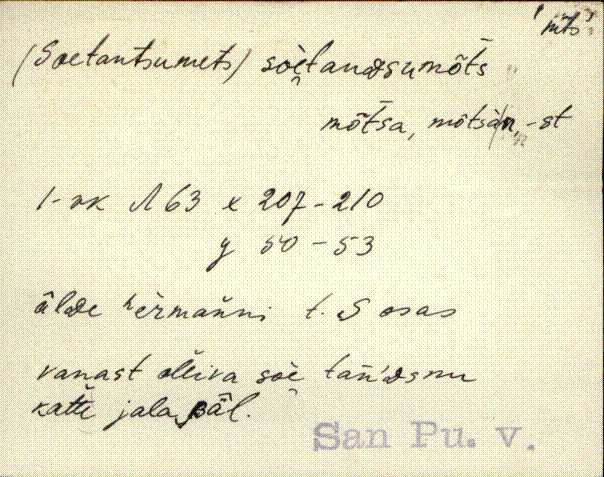 mts
(Soetantsumets) soetandsumõts
mõtsa, mõtsan, -st
1-vk N 63 x 207-210
y 50-53
älde hèrmanni t. S osas
vanast olliva soe tan'dsnu
katte jala pääl.
San Pu. v.